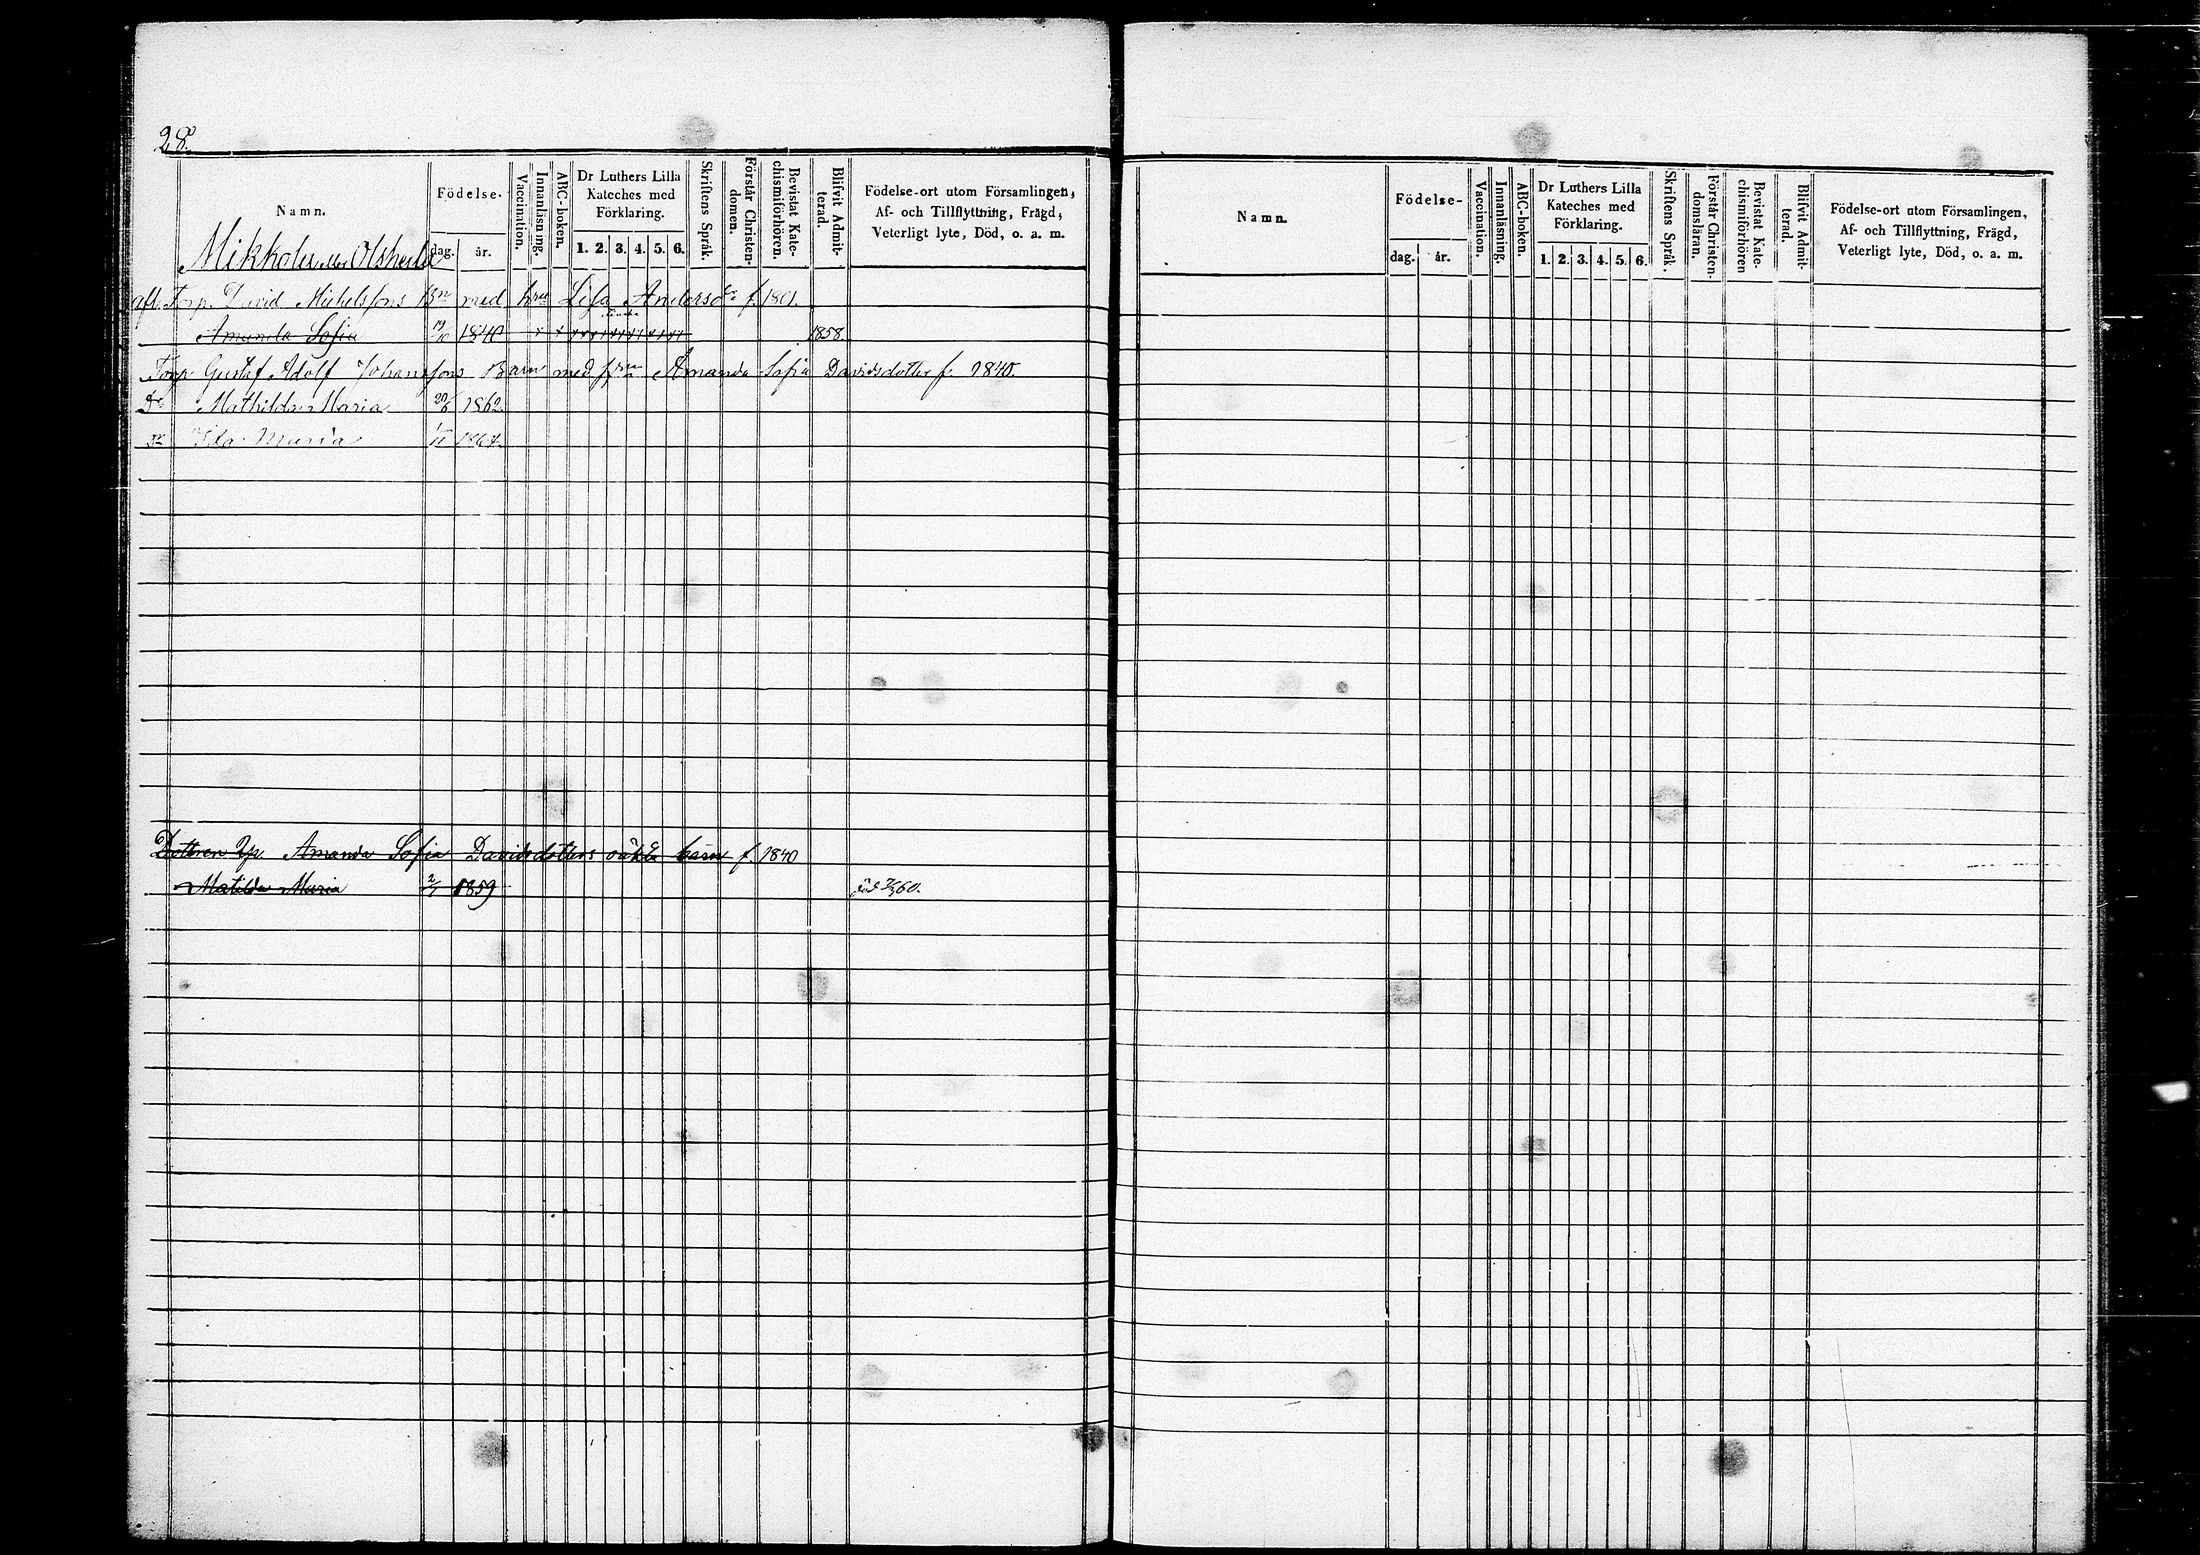 28.
Namn.
Födelse-
dag.
år.
Vaccination.
Innanläsning.
ABC-boken.
Dr Luthers Lilla
Kateches med
Förklaring.
1. 2. 3. 4. 5. 6.
Skriftens Språk.
Förstår Christen-
domen.
Bevistat Kate-
chismiförhören.
Blifvit Admit-
terad.
Födelse-ort utom Församlingen,
Af- och Tillflyttning, Frägd,
Veterligt lyte, Död, o. a. m.
Mikkola
Torp. David Michelssons Bn med hru Lisa Andersdr f. 1801.
Amanda Sofia 19/10 1840 1858.
Torp. Gustaf Adolf Johanssons Barn med hru Amanda Sofia Davidsdotter f. 1840.
Dr Mathilda Maria 20/6 1862.
Dr Ida Maria 1/11 1864.
Dotteren Amanda Sofia Davidsdotters oäkta barn f. 1840
Matilda Maria 1859 död 60.
Namn.
Födelse-
dag.
år.
Vaccination.
Innanläsning.
ABC-boken.
Dr Luthers Lilla
Kateches med
Förklaring.
1. 2. 3. 4. 5. 6.
Skriftens Språk.
Förstår Christen-
domsläran.
Bevistat Kate-
chismiförhören
Blifvit Admit-
terad.
Födelse-ort utom Församlingen,
Af- och Tillflyttning, Frägd,
Veterligt lyte, Död, o. a. m.